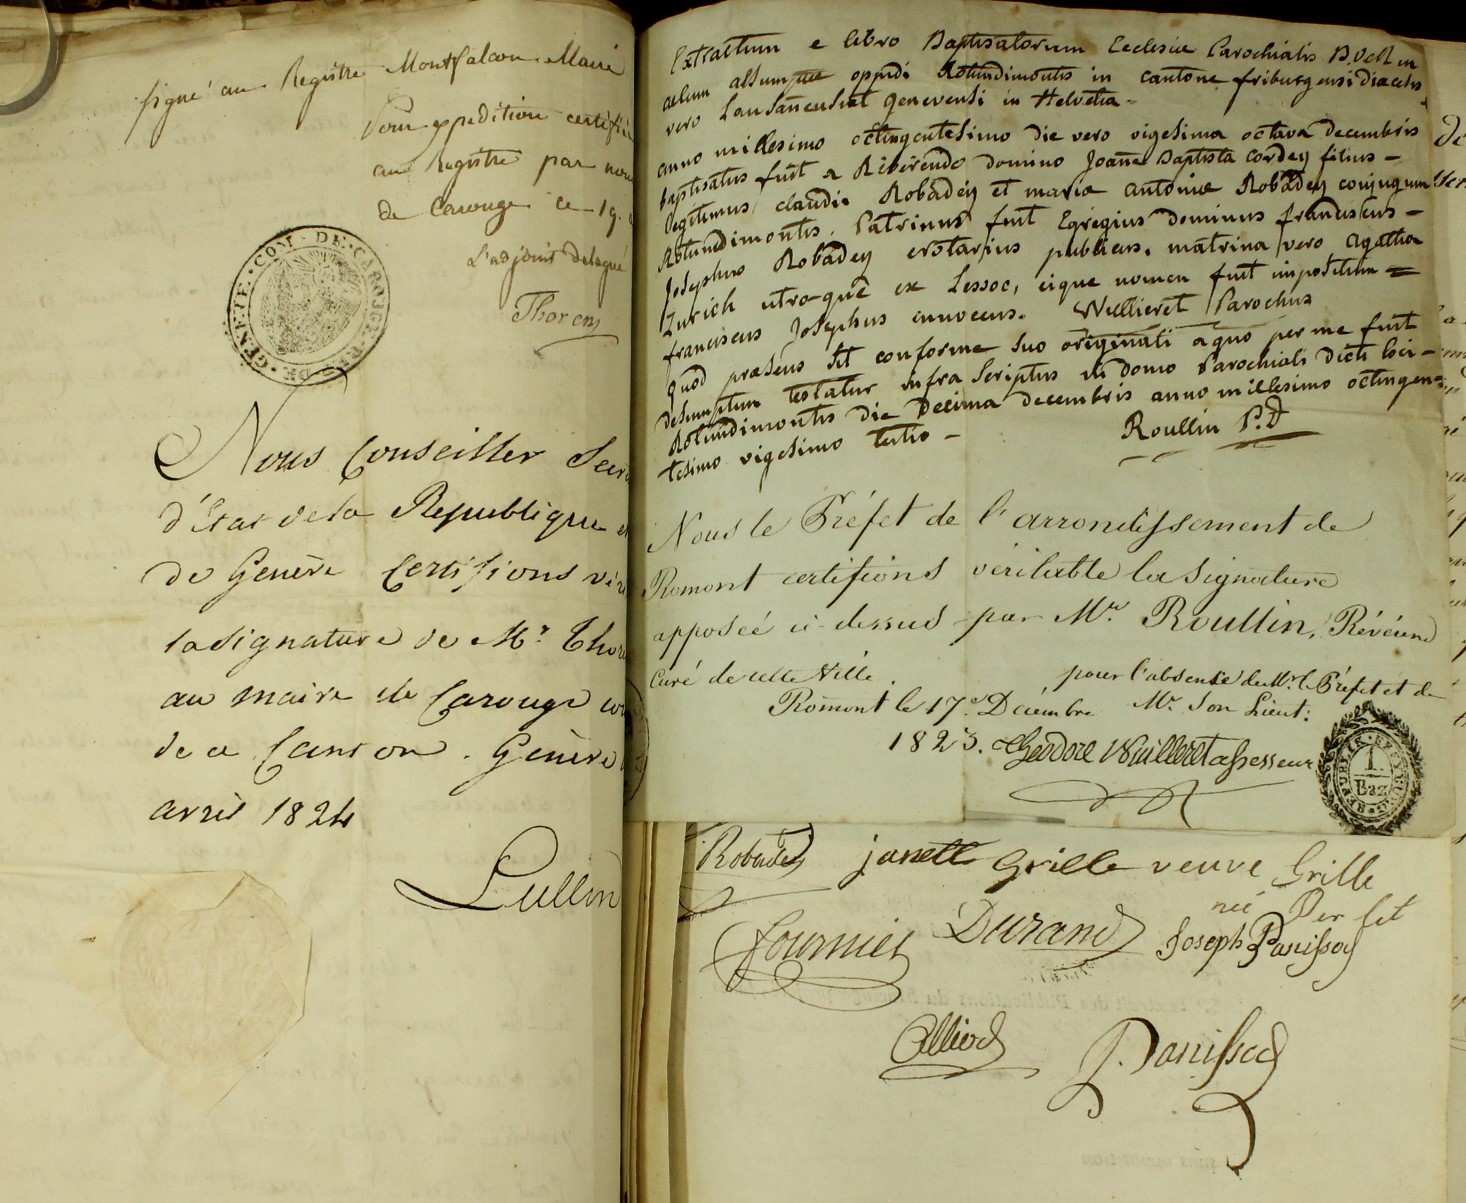 signé au Registre Montfalcon Maire
Pour expedition certifié
au Registre par nous
de Carouge ce 19.
L'adjoint delegué
Thorens
COM. DE. CAROUGE. REP. DE. GENEVE
Nous Conseiller Secr
d'Etat de la Republique et
de Genève Certifions véri
la signature de Mr. Thor
au maire de Carouge
de ce Canton. Genève
avril 1824
Lullin
Extractum e libro Baptisatorum Ecclesiæ Parochialis B.V. in
cælum assumptæ oppidi Rotundimontis in cantone friburgensi diæcesis
vero Lausanensis et genevensi in Helvetia -
anno millesimo octingentesimo die vero vigesima octava decembris
baptisatus fuit a Reverendo domino Joanne Baptista Cordey filius -
legitimus claudii Robadey et mariæ antoniæ Robadey conjugum
Rotundimontis. Patrinus fuit Egregius dominus franciscus -
Josephus Robadey publicus. matrina vero Agatha
Zurich utroque ex Lessoc, eique nomen fuit impositum =
franciscus Josephus innocens. Wuillieret Parochus
Quod præsens sit conforme suo originali a quo per me fuit
desumptum testatur infra scriptus in domo Parochiali dicti loci -
Rotundimontis die Decima decembris anno millesimo octingen=
tesimo vigesimo tertio -
Roullin P.
Nous le Préfet de l'arrondissement de
Romont certifions véritable la signature
apposée ci-dessus par Mr. Roullin, Révérend
Curé de cette Ville.
pour l'absence de Mr. le Préfet et de
Romont le 17e. Décembre Mr. Son Lieut:
1823. Théodore Wuilleret assesseur
1.
Baz
Robadey janette Grille veuve Grille
née
Fournier Durand Joseph Panissod
Alliod P. Panissod